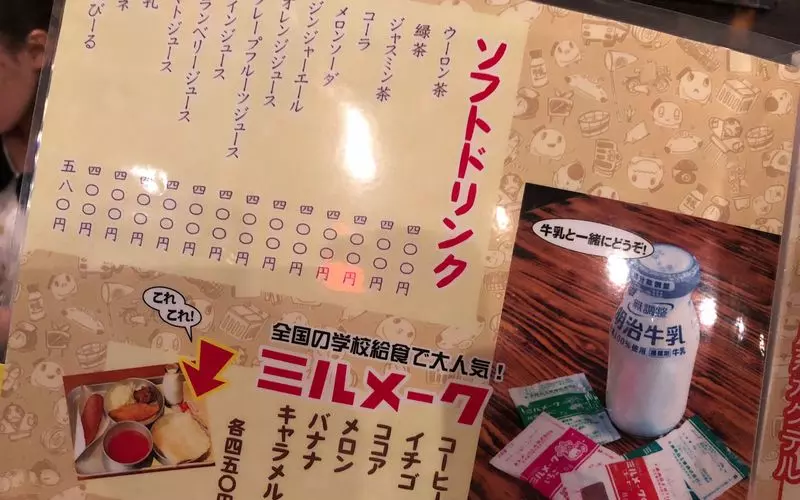 ソフトドリンク
ウーロン茶 四〇〇円
緑茶 四〇〇円
ジャスミン茶 四〇〇円
コーラ 四〇〇円
メロンソーダ 四〇〇円
ジンジャーエール 四〇〇円
オレンジジュース 四〇〇円
グレープフルーツジュース 四〇〇円
インジュース 四〇〇円
ランベリージュース 四〇〇円
マトジュース 四〇〇円
乳 四〇〇円
ネ 四〇〇円
びーる 五八〇円
牛乳と一緒にどうぞ!
無調整
明治牛乳
100%使用
牛乳
これ
これ!
全国の学校給食で大人気!
ミルメーク
コーヒー
イチゴ
ココア
メロン
バナナ
キャラメル
各四五〇円
ミルメーク